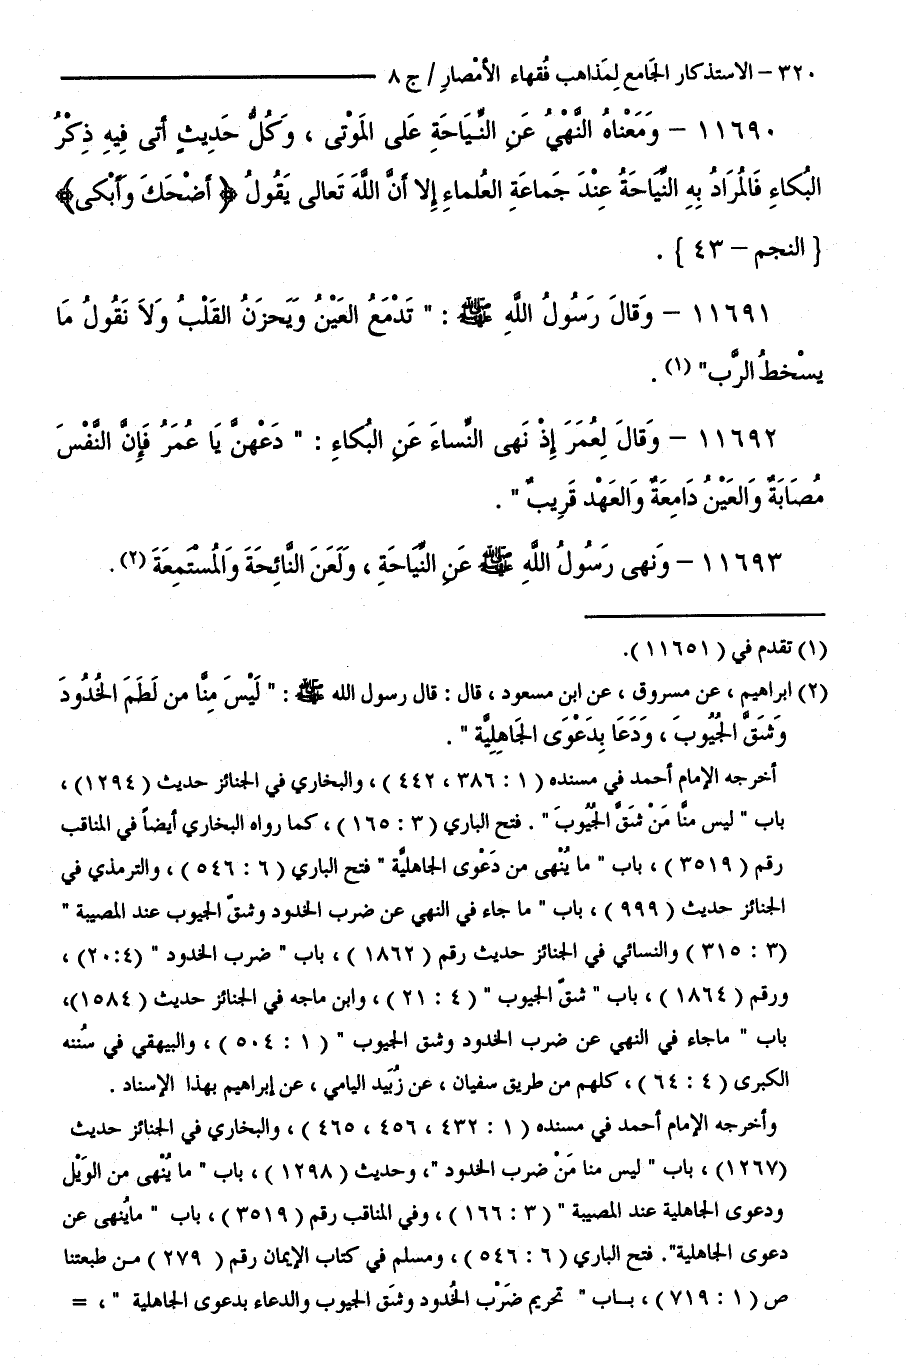 ٣٢٠ – الاستذكار الجَامع لِمَذاهب فُقهاء الأمْصارِ / ج ٨
١١٦٩٠ – وَمَعْناهُ النَّهْيُ عَنِ النِّياحَةِ عَلى المَوْتى ، وَكُلُّ حَديثٍ أتى فِيهِ ذِكْرُ
البُكاءِ فَالمُرادُ بِهِ النِّيَاحَةُ عِنْدَ جَماعَةِ العُلماءِ إلا أنَّ اللَّهَ تَعالى يَقُولُ ﴿ أضْحَكَ وَأَبْكى﴾
{ النجم – ٤٣ } .
١١٦٩١ – وَقالَ رَسُولُ اللَّهِ ﷺ : " تَدْمَعُ العَيْنُ وَيَحزَنُ القَلْبُ وَلاَ نَقُولُ مَا
يسْخطُ الرَّب" (١) .
١١٦٩٢ – وَقالَ لِعُمَرَ إِذْ نَهى النِّساءَ عَنِ البُكاءِ : " دَعْهنَّ يَا عُمَرُ فَإِنَّ النَّفْسَ
مُصَابَةٌ وَالعَيْنُ دَامِعَةٌ وَالعَهْد قَرِيبٌ " .
١١٦٩٣ – وَنَهى رَسُولُ اللَّهِ ﷺ عَنِ النِّيَاحَةِ ، وَلَعَنَ النَّائِحَةَ وَالمُسْتَمِعَةَ (٢) .
(١) تقدم في ( ١١٦٥١ ).
(٢) ابراهيم ، عن مسروق ، عن ابن مسعود ، قال : قال رسول الله ﷺ : " لَيْسَ مِنَّا من لَطَمَ الخُدُودَ
وَشَقَّ الجُيُوبَ ، وَدَعَا بِدَعْوَى الجَاهِليَّة " .
أخرجه الإمام أحمد في مسنده ( ١ : ٣٨٦ ، ٤٤٢ ) ، والبخاري في الجنائز حديث ( ١٢٩٤) ،
باب " ليس منَّا مَنْ شقَّ الجُيُوبَ " . فتح الباري ( ٣ : ١٦٥ ) ، كما رواه البخاري أيضاً في المناقب
رقم ( ٣٥١٩ ) ، باب " ما يُنْهى من دَعْوَى الجاهليَّة " فتح الباري ( ٦ : ٥٤٦ ) ، والترمذي في
الجنائز حديث ( ٩٩٩ ) ، باب " ما جاء في النهي عن ضرب الخدود وشقّ الجيوب عند المصيبة "
(٣ : ٣١٥ ) والنسائي في الجنائز حديث رقم ( ١٨٦٢ ) ، باب " ضرب الخدود " (٤:٢٠) ،
ورقم ( ١٨٦٤ ) ، باب " شقّ الجيوب " ( ٤ : ٢١ ) ، وابن ماجه في الجنائز حديث ( ١٥٨٤)،
باب " ماجاء في النهي عن ضرب الخدود وشق الجيوب " ( ١ : ٥٠٤ ) ، والبيهقي في سُننه
الكبرى ( ٤ : ٦٤ ) ، كلهم من طريق سفيان ، عن زُبَيد اليامي ، عن إبراهيم بهذا الإسناد .
وأخرجه الإمام أحمد في مسنده ( ١ : ٤٣٢ ، ٤٥٦ ، ٤٦٥ ) ، والبخاري في الجنائز حديث
(١٢٦٧) ، باب " ليس منا مَنْ ضرب الخدود "، وحديث ( ١٢٩٨ ) ، باب " ما يُنْهى من الوَيْل
ودعوى الجاهلية عند المصيبة " ( ٣ : ١٦٦ ) ، وفي المناقب رقم ( ٣٥١٩ ) ، باب " مايُنهى عن
دعوى الجاهلية". فتح الباري ( ٦ : ٥٤٦ ) ، ومسلم في كتاب الإيمان رقم ( ٢٧٩ ) مـن طبعتنا
ص ( ١ : ٧١٩ ) ، بــاب " تحريم ضَرْب الخُدود وشَق الجيوب والدعاء بدعوى الجاهلية " ، =